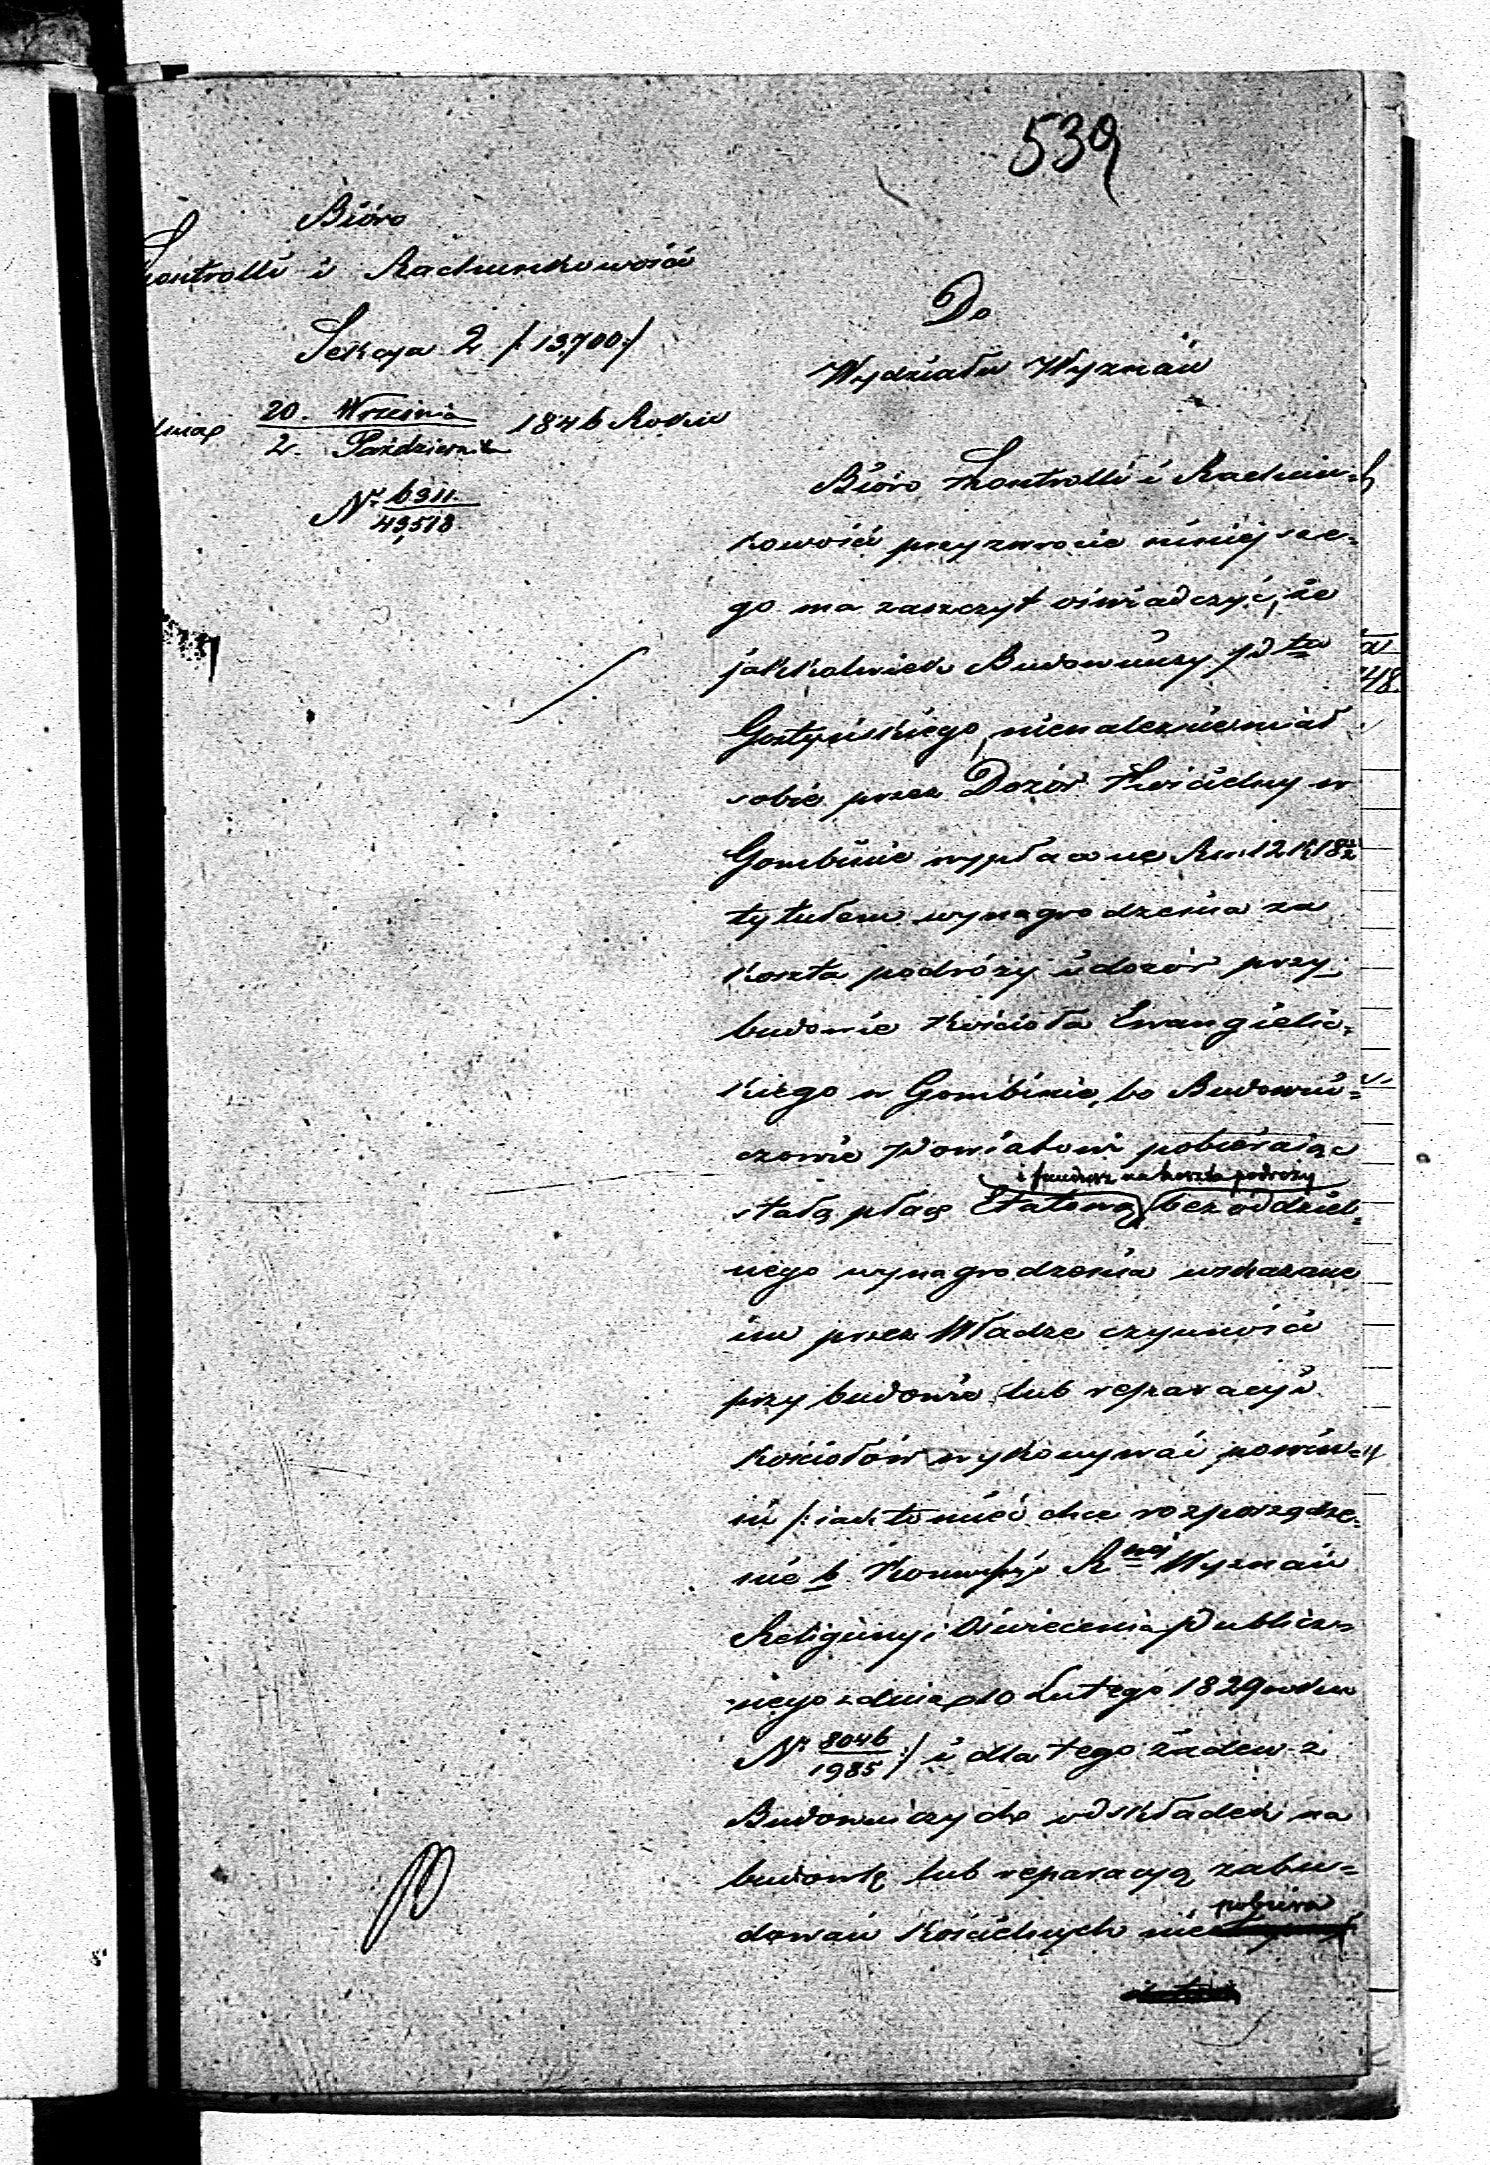 539
Bióro
Kontrolli i Rachunkowości
Sekcya 2 /:13,700:/
dnia 20. Września / 2. Październik 1846 Roku
Nr 6311. / 43,518
Do
Wydziału Wyznań
Bióro Kontrolli i Rachun=
kowości przy zwrocie niniejsze=
go ma zaszczyt oświadczyć, że
jakkolwiek Budowniczy Ptu
Gostyńskiego, nienależnie miał
sobie przez Dozór Kościelny w
Gombinie wypłacone Rsr 12 k 18
tytułem wynagrodzenia za
koszta podróży i dozór przy
budowie Kościoła Ewangielic=
kiego w Gombinie, bo Budowni=
czowie Powiatowi pobierając
i fundusz na koszta podróży
stałą płacę Etatową bez oddziel=
nego wynagrodzenia wskazane
im przez Władze czynności
przy budowie lub reparacyi
Kościołów wykonywać powin=
ni /: jak to mieć chce rozporządze=
nie b. Kommissyi Rnej Wyznań
Religijny i Oświecenia Publicz=
nego z dnia 10 Lutego 1829 roku
Nr 8046 / 1985 :/ i dla tego żaden z
Budowniczych od składek na
budowlę lub reparacyą zabu=
dowań Kościelnych nie pobiera